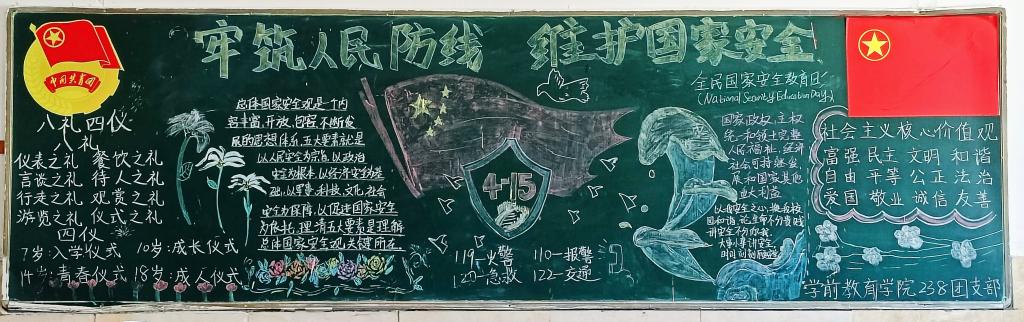 牢筑人民防线 维护国家安全
中国共青团
八礼四仪
八礼
仪表之礼 餐饮之礼
言谈之礼 待人之礼
行走之礼 观赏之礼
游览之礼 仪式之礼
四仪
7岁:入学仪式 10岁:成长仪式
14岁:青春仪式 18岁:成人仪式
总体国家安全观是一个内
容丰富,开放,包容,不断发
展的思想体系,五大要素就是
以人民安全为宗旨,以政治
安全为根本,以经济安全为基
础,以军事,科技,文化,社会
安全为保障,以促进国际安全
为依托,理清五大要素是理解
总体国家安全观关键所在
4·15
119-火警 110-报警
120-急救 122-交通
全民国家安全教育日
(National Security Education Day)
国家政权,主权
统一和领土完整
人民福祉,经济
社会可持续发
展和国家其他
重大利益
讲安全不分你我
大事小事讲安全
社会主义核心价值观
富强 民主 文明 和谐
自由 平等 公正 法治
爱国 敬业 诚信 友善
学前教育学院238团支部